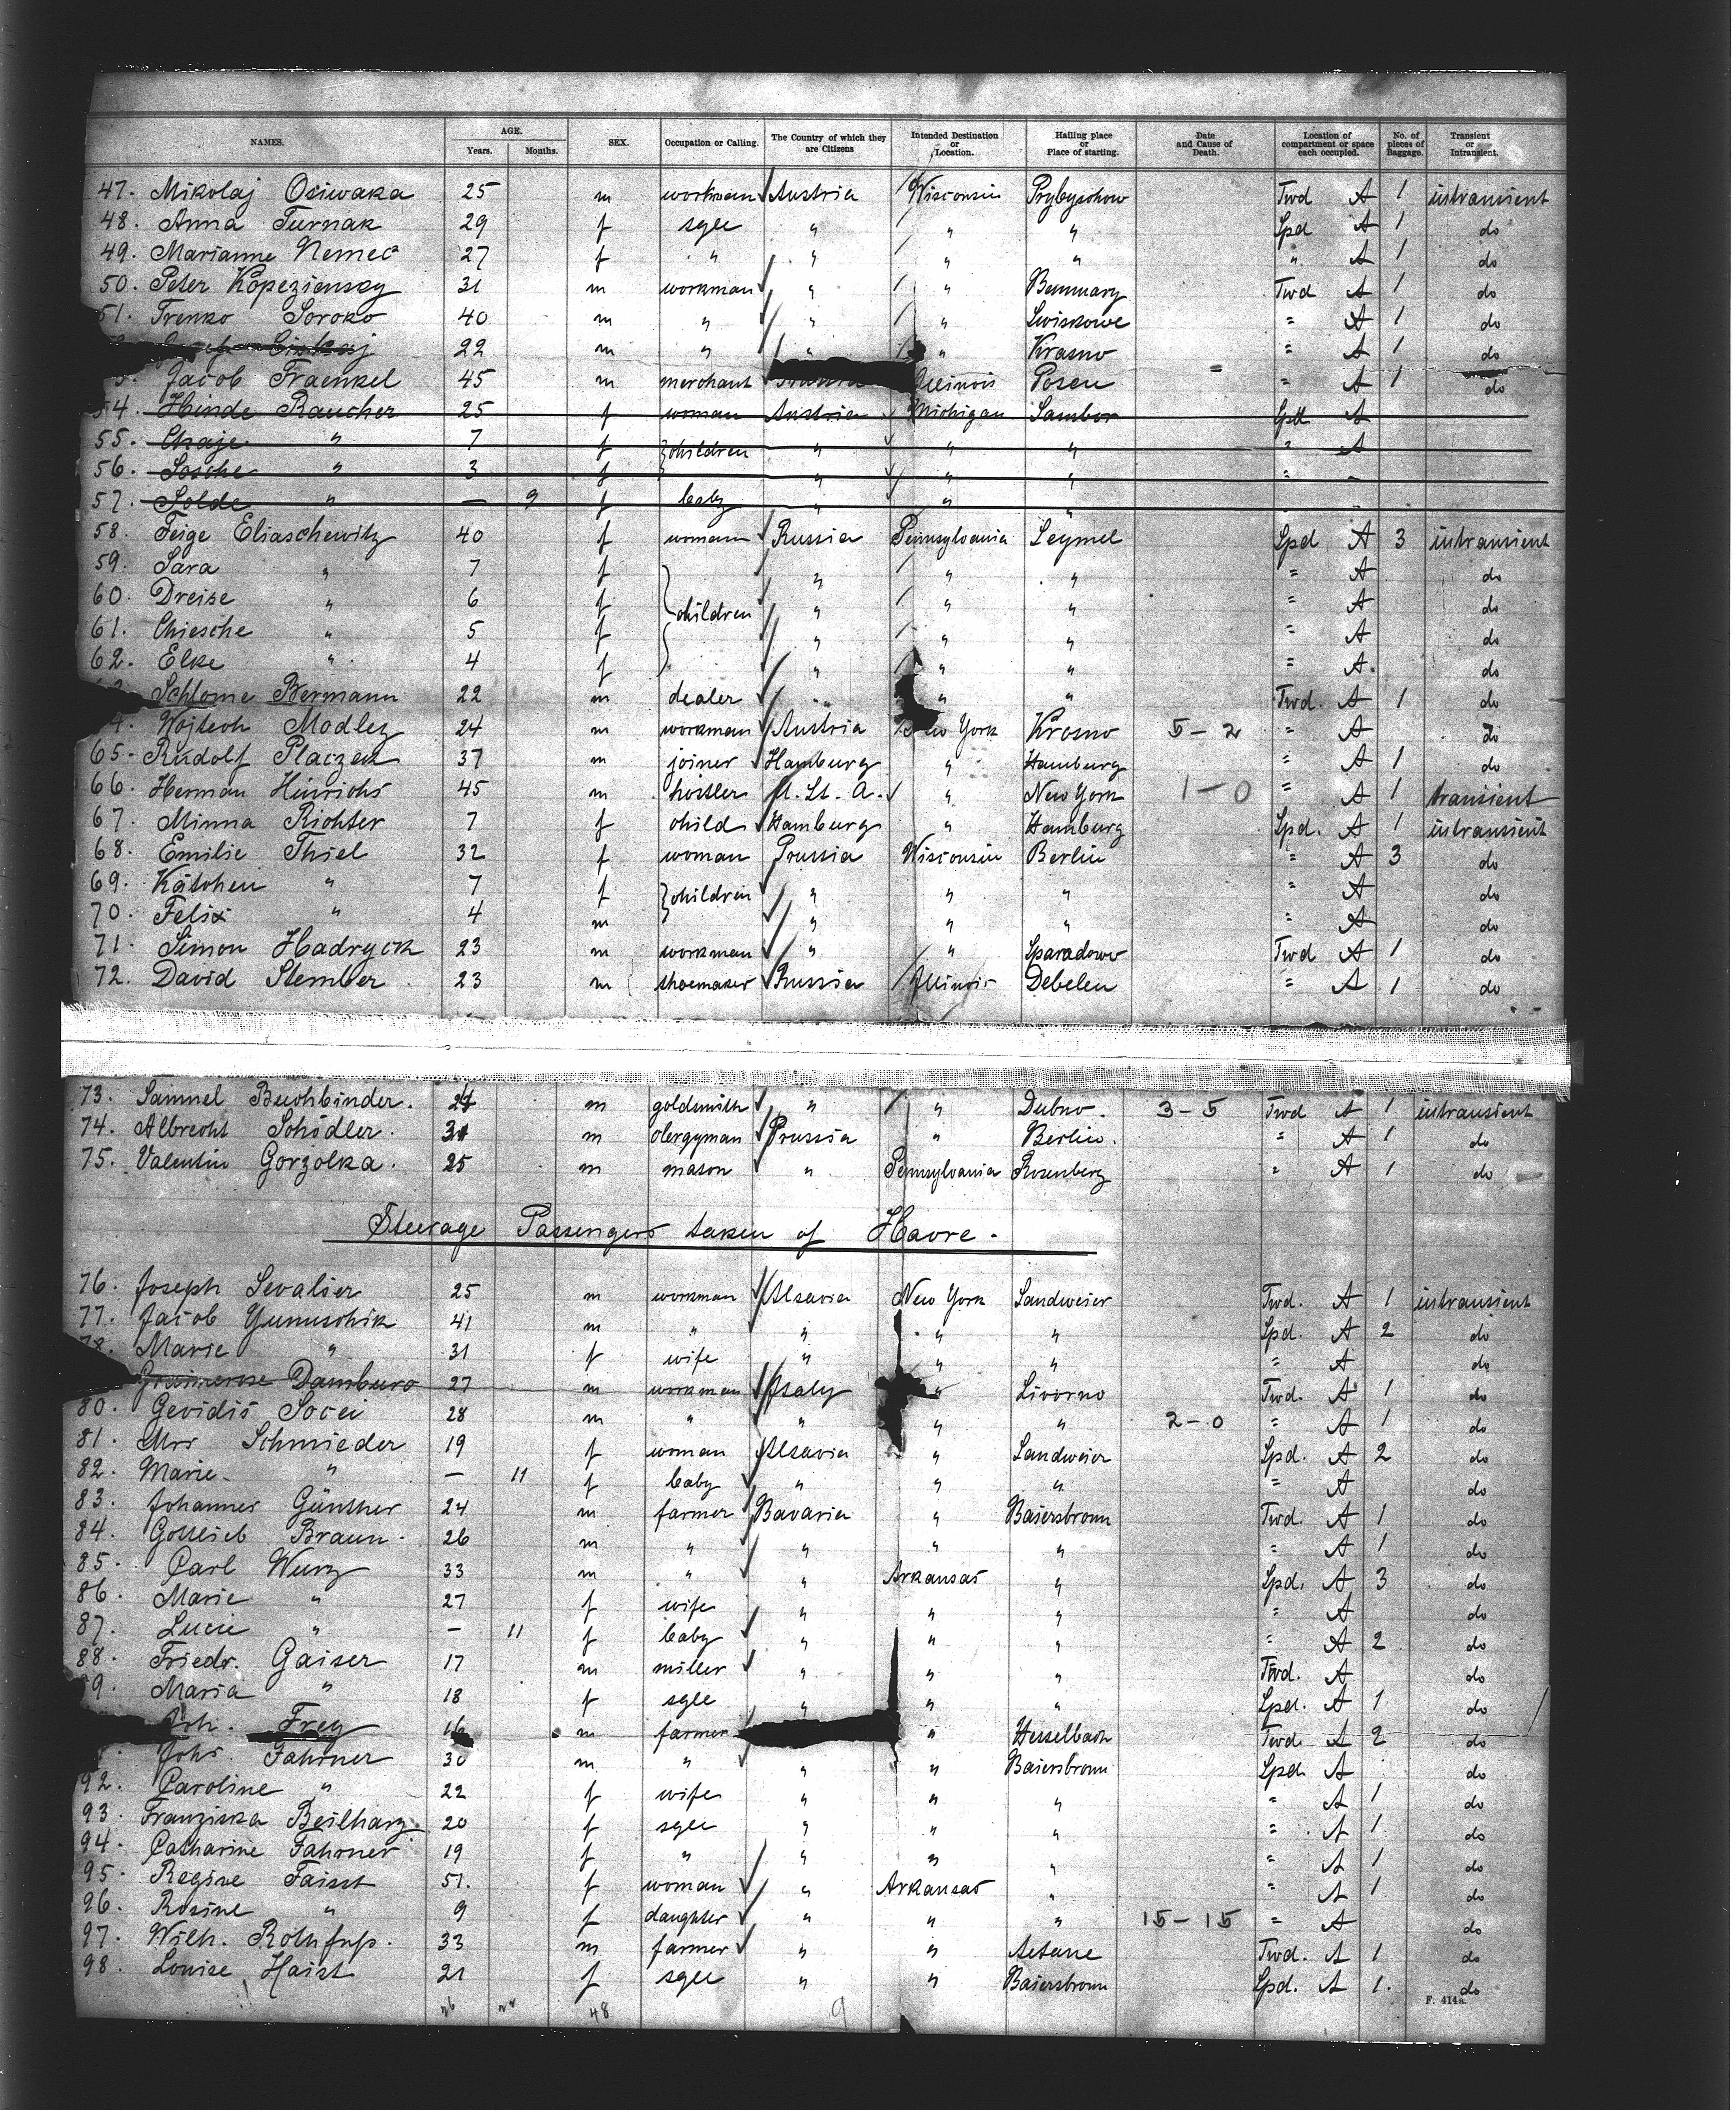 NAMES. AGE. Years. Months. SEX. Occupation or Calling. The Country of which they are Citizens Intended Destination or Location. Hailing place or Place of starting. Date and Cause of Death. Location of compartment or space each occupied. No. of pieces of Baggage. Transient or Intransient.
47. Mikolaj Osiwaka 25 m workman Austria Wisconsin Prybyschow Twd A 1 intransient
48. Anna Turnak 29 f sgle " " " Spd A 1 do
49. Marianne Nemec 27 f " " " " " A 1 do
50. Peter Kopeziensky 31 m workman " " Bunnary Twd A 1 do
51. Trenko Soroko 40 m " " " Swiskowe " A 1 do
22 m " " " Krasno " A 1 do
3. Jacob Fraenkel 45 m merchant Illinois Posen " A 1 do
54. Hinde Raucher 25 f woman Austria Michigan Sambor Spd A
55. Chaje " 7 f children " " " " A
56. Sosche " 3 f " " " "
57. Solde " — 9 f baby " " "
58. Feige Eliaschewitz 40 f woman Russia Pennsylvania Seymel Spd A 3 intransient
59. Sara " 7 f " " " " A do
60. Dreise " 6 f children " " " " A do
61. Chiesche " 5 f " " " " A do
62. Elke " 4 f " " " " A. do
Schlome Bermann 22 m dealer " " " Twd. A 1 do
4. Wojtech Modlez 24 m workman Austria New York Krosno 5-2 " A do
65. Rudolf Placzek 37 m joiner Hamburg " Hamburg " A 1 do
66. Herman Hinrichs 45 m hostler U. St. A. " New York 1-0 " A 1 transient
67. Minna Richter 7 f child Hamburg " Hamburg Spd. A 1 intransient
68. Emilie Thiel 32 f woman Prussia Wisconsin Berlin " A 3 do
69. Kätchen " 7 f children " " " " A do
70. Felix " 4 m " " " " A do
71. Simon Hadryck 23 m workman " " Sparadowo Twd A 1 do
72. David Stember 23 m shoemaker Russia Illinois Debelen " A 1 do
73. Samuel Buchbinder. 24 m goldsmith " " Dubno. 3-5 Twd A 1 intransient
74. Albrecht Schödler. 31 m clergyman Prussia " Berlin. " A 1 do
75. Valentin Gorzolka. 25 m mason " Pennsylvania Rosenberg " A 1 do
Steerage Passengers taken of Havre.
76. Joseph Levalier 25 m workman Alsavia New York Sandweier Twd. A 1 intransient
77. Jacob Yunuschik 41 m " " " " Spd. A 2 do
78. Marie " 31 f wife " " " " A do
Damburo 27 m workman Italy " Livorno Twd. A 1 do
80. Gevidis Socei 28 m " " " " 2-0 " A 1 do
81. Mrs Schmieder 19 f woman Alsavia " Sandweier Spd. A 2 do
82. Marie " — 11 f baby " " " " A do
83. Johannes Günther 24 m farmer Bavaria " Baiersbronn Twd. A 1 do
84. Gottlieb Braun. 26 m " " " " " A 1 do
85. Carl Wurz 33 m " " Arkansas " Spd. A 3 do
86. Marie " 27 f wife " " " " A do
87. Lucie " — 11 f baby " " " " A 2 do
88. Friedr. Gaiser 17 m miller " " " Twd. A do
9. Maria " 18 f sgle " " " Spd. A 1 do
Joh. Frey 16 m farmer " Hesselbach Twd. A 2 do
Johs. Fahrner 30 m " " " Baiersbronn Spd. A do
92. Caroline " 22 f wife " " " " A 1 do
93. Franziska Beilharz 20 f sgle " " " " A 1 do
94. Catharine Fahrner 19 f " " " " " A 1 do
95. Regine Faisst 51. f woman " Arkansas " " A 1 do
96. Rosine " 9 f daughter " " " 15-15 " A do
97. Wilh. Rothfuss. 33 m farmer " " Aetane Twd. A 1 do
98. Louise Haist 21 f sgle " " Baiersbronn Spd. A 1. do
48 9 F. 414a.